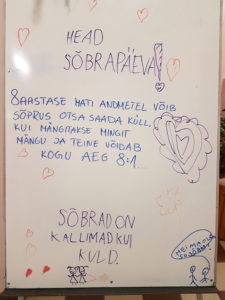 HEAD
SÕBRAPÄEVA!
8AASTASE MATI ANDMETEL VÕIB
SÕPRUS OTSA SAADA KÜLL,
KUI MÄNGITAKSE MINGIT
MÄNGU JA TEINE VÕIDAB
KOGU AEG 8:1...
SÕBRAD ON
KALLIMAD KUI
KULD.